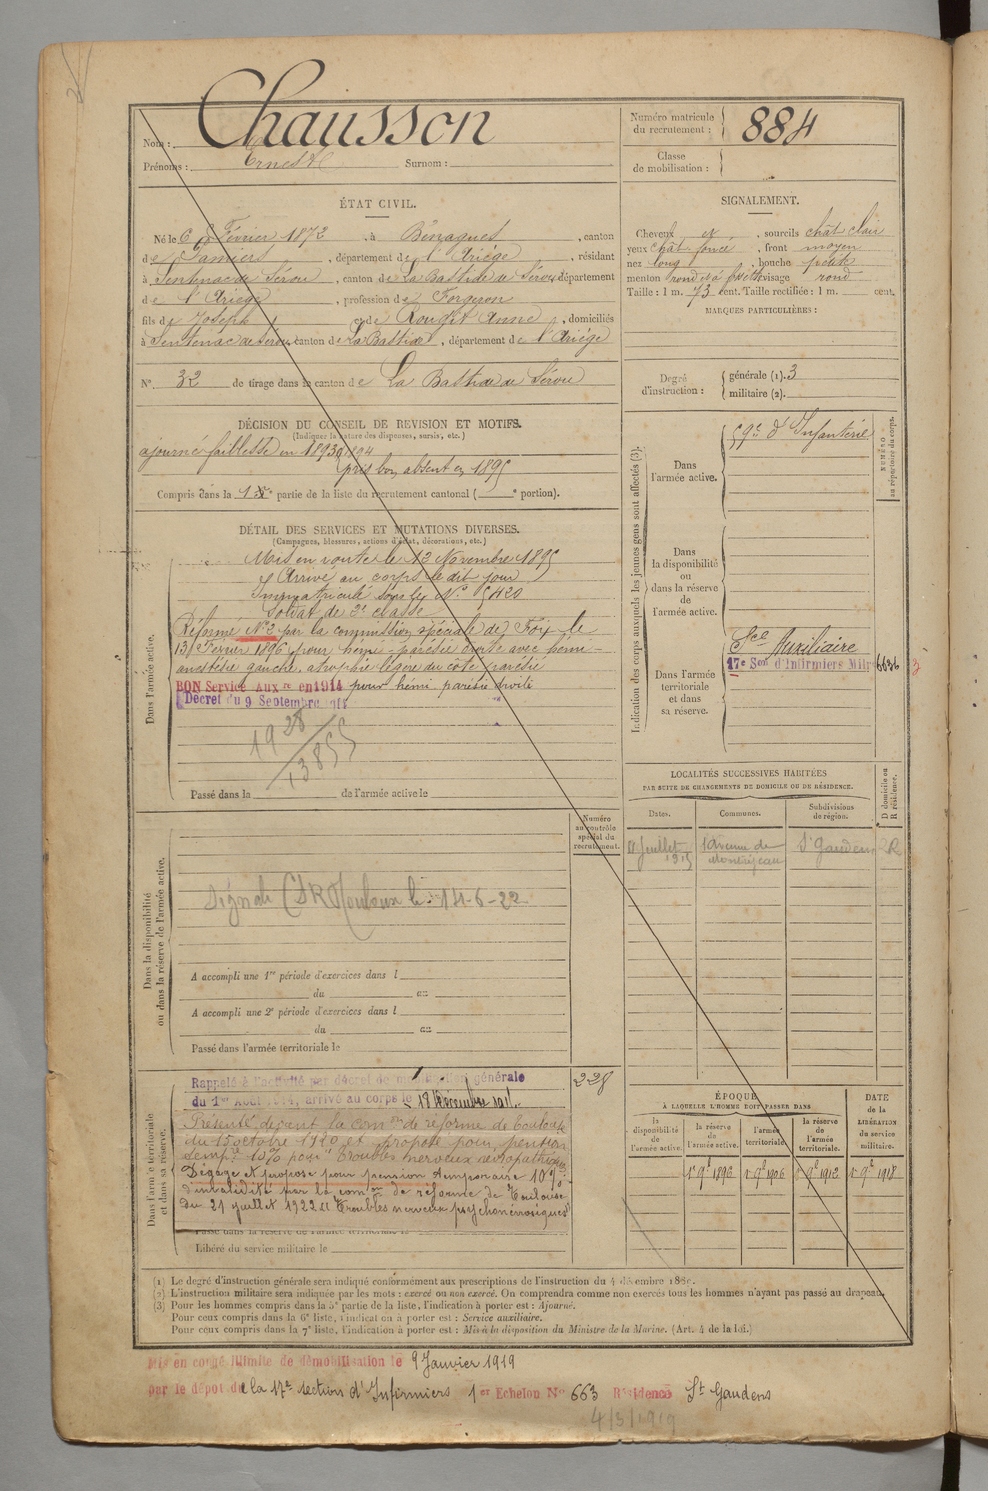 Chausson
Nom :
Prénoms : Ernest Surnom :
Numéro matricule du recrutement : 884
Classe de mobilisation :
ÉTAT CIVIL.
Né le 6 Février 1872, à Bénagues, canton
de Pamiers, département de l'Ariège, résidant
à Sentenac de Sérou, canton de La Bastide de Sérou, département
de l'Ariège, profession de Forgeron
fils de Joseph et de Rougit Anne, domiciliés
à Sentenac de Sérou, canton de La Bastide, département de l'Ariège
N° 32 de tirage dans le canton de La Bastide de Sérou
SIGNALEMENT.
Cheveux et, sourcils chât clair
yeux chât foncé, front moyen
nez long, bouche petite
menton rond à fossette visage rond
Taille : 1 m. 73 cent. Taille rectifiée : 1 m. cent.
MARQUES PARTICULIÈRES :
Degré d'instruction : générale (1). 3
militaire (2).
DÉCISION DU CONSEIL DE REVISION ET MOTIFS.
(Indiquer la nature des dispenses, sursis, etc.)
ajourné faiblesse en 1893 1894
pris bon absent en 1895
Compris dans la 1re partie de la liste du recrutement cantonal ( e portion).
DÉTAIL DES SERVICES ET MUTATIONS DIVERSES.
(Campagnes, blessures, actions d'éclat, décorations, etc.)
Dans l'armée active.
Mis en route le 12 Novembre 1895
Arrivé au corps le dit jour
Immatriculé sous le N° 5420
Soldat de 2e classe
Réformé N° 2 par la commission spéciale de Foix le
13 Février 1896 pour hémi-parésie droite avec hémi-
anesthésie gauche, atrophie légère du côté parésié
BON Service Auxre en 1914 pour hémi parésie droite
Décret du 9 Septembre 1914
1928
13855
Passé dans la de l'armée active le
Indication des corps auxquels les jeunes gens sont affectés (3).
NUMÉRO au répertoire du corps.
Dans l'armée active.
59e d'Infanterie
Dans la disponibilité ou dans la réserve de l'armée active.
Dans l'armée territoriale et dans sa réserve.
Sce Auxiliaire
17e Son d'Infirmiers Mitres 6636
3
LOCALITÉS SUCCESSIVES HABITÉES
PAR SUITE DE CHANGEMENTS DE DOMICILE OU DE RÉSIDENCE.
D domicile ou R résidence.
Dates. Communes. Subdivisions de région.
Juillet 1915 1 Avenue de Montréjeau St Gaudens R
Numéro au contrôle spécial du recrutement.
Dans la disponibilité ou dans la réserve de l'armée active.
14-6-22
A accompli une 1re période d'exercices dans l
du au
A accompli une 2e période d'exercices dans l
du au
Passé dans l'armée territoriale le
228
Dans l'armée territoriale et dans sa réserve.
Rappelé à l'activité par décret de mobilisation générale
du 1er Août 1914, arrivé au corps le 18 Décembre 1914.
Présenté devant la comon de réforme de Toulouse
du 15 octobre 1920 et proposé pour pension
temp. 10% pour "Troubles nerveux névropathiques"
Dégagé et proposé pour pension temporaire 10%
d'invalidité par la comon de réforme de Toulouse
du 21 juillet 1922 "Troubles nerveux psychonévrosiques"
Passé dans la réserve de l'armée territoriale le
Libéré du service militaire le
ÉPOQUE
À LAQUELLE L'HOMME DOIT PASSER DANS
DATE de la LIBÉRATION du service militaire.
la disponibilité de l'armée active. la réserve de l'armée active. l'armée territoriale. la réserve de l'armée territoriale.
1er 9bre 1896 1er 9bre 1906 1er 9bre 1912 1er 9bre 1918
(1) Le degré d'instruction générale sera indiqué conformément aux prescriptions de l'instruction du 4 décembre 1889.
(2) L'instruction militaire sera indiquée par les mots : exercé ou non exercé. On comprendra comme non exercés tous les hommes n'ayant pas passé au drapeau.
(3) Pour les hommes compris dans la 5e partie de la liste, l'indication à porter est : Ajourné.
Pour ceux compris dans la 6e liste, l'indication à porter est : Service auxiliaire.
Pour ceux compris dans la 7e liste, l'indication à porter est : Mis à la disposition du Ministre de la Marine. (Art. 4 de la loi.)
Mis en congé illimité de démobilisation le 9 Janvier 1919
par le dépôt de la 17e section d'Infirmiers 1er Echelon No 663 Résidence St Gaudens
4/3/1919